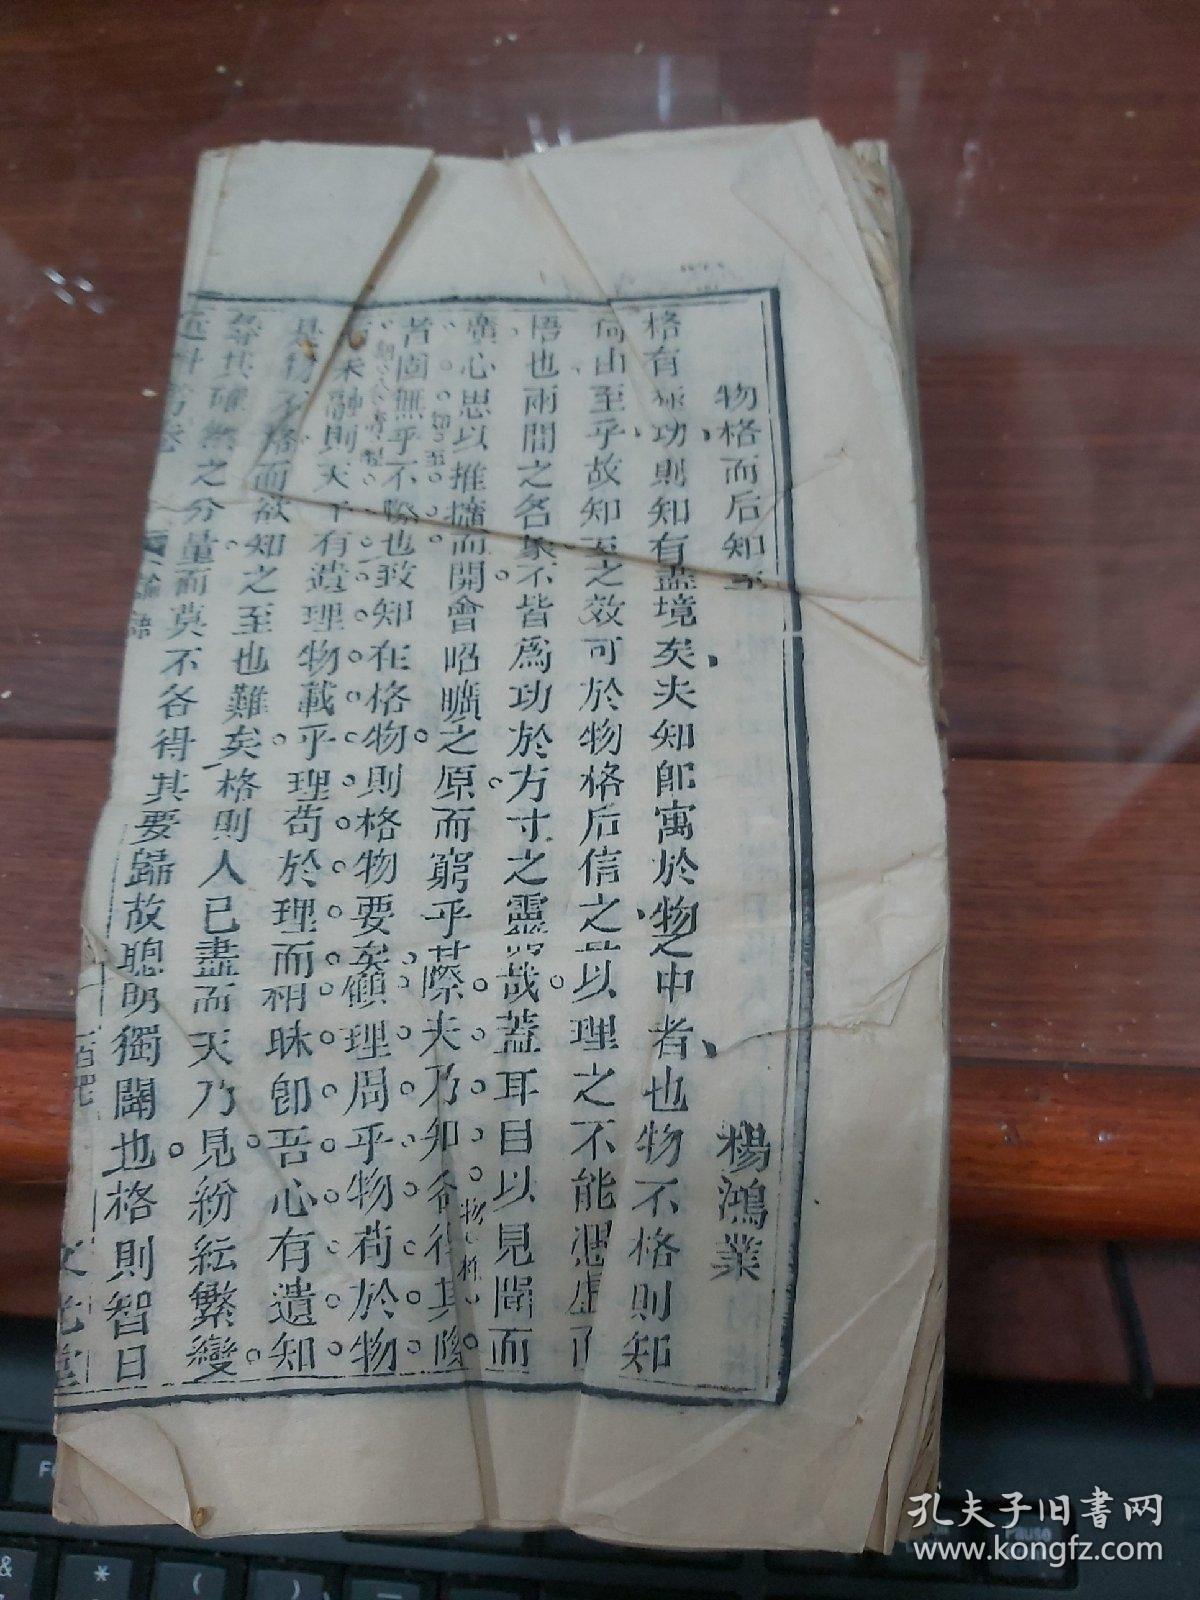 物格而后知至 楊鴻業
格有 功則知有盡境矣夫知即寓於物之中者也物不格則知
何由至乎故知至之效可於物格后信之 以理之不能憑虛而
悟也兩間之名象不皆為功於方寸之靈 哉蓋耳目以見聞而
廣心思以推擴而開會昭曠之原而窮乎其際夫乃知 得其
者固無乎不際也致知在格物則格物要矣顧理周乎物苟於物
有未融則天下有遺理物載乎理苟於理而相昧即吾心有遺知
是物不格而欲知之至也難矣格則人已盡而天乃見紛紜繁變
尋其確然之分量而莫不各得其要歸故聰明獨闢也格則智日
論語
一百
文 堂
孔夫子旧書网
www.kongfz.com
Pause
&
*
(
)